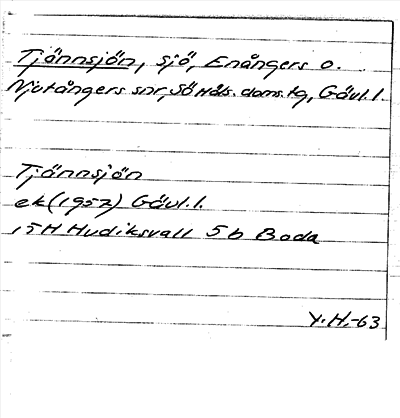 Tjännsjön, sjö, Enångers o.
Njutångers snr, Sö Häls. doms. tg, Gävl.l.
Tjännsjön
ek (1957) Gävl.l.
15H Hudiksvall 5b Boda
Y.H.-63